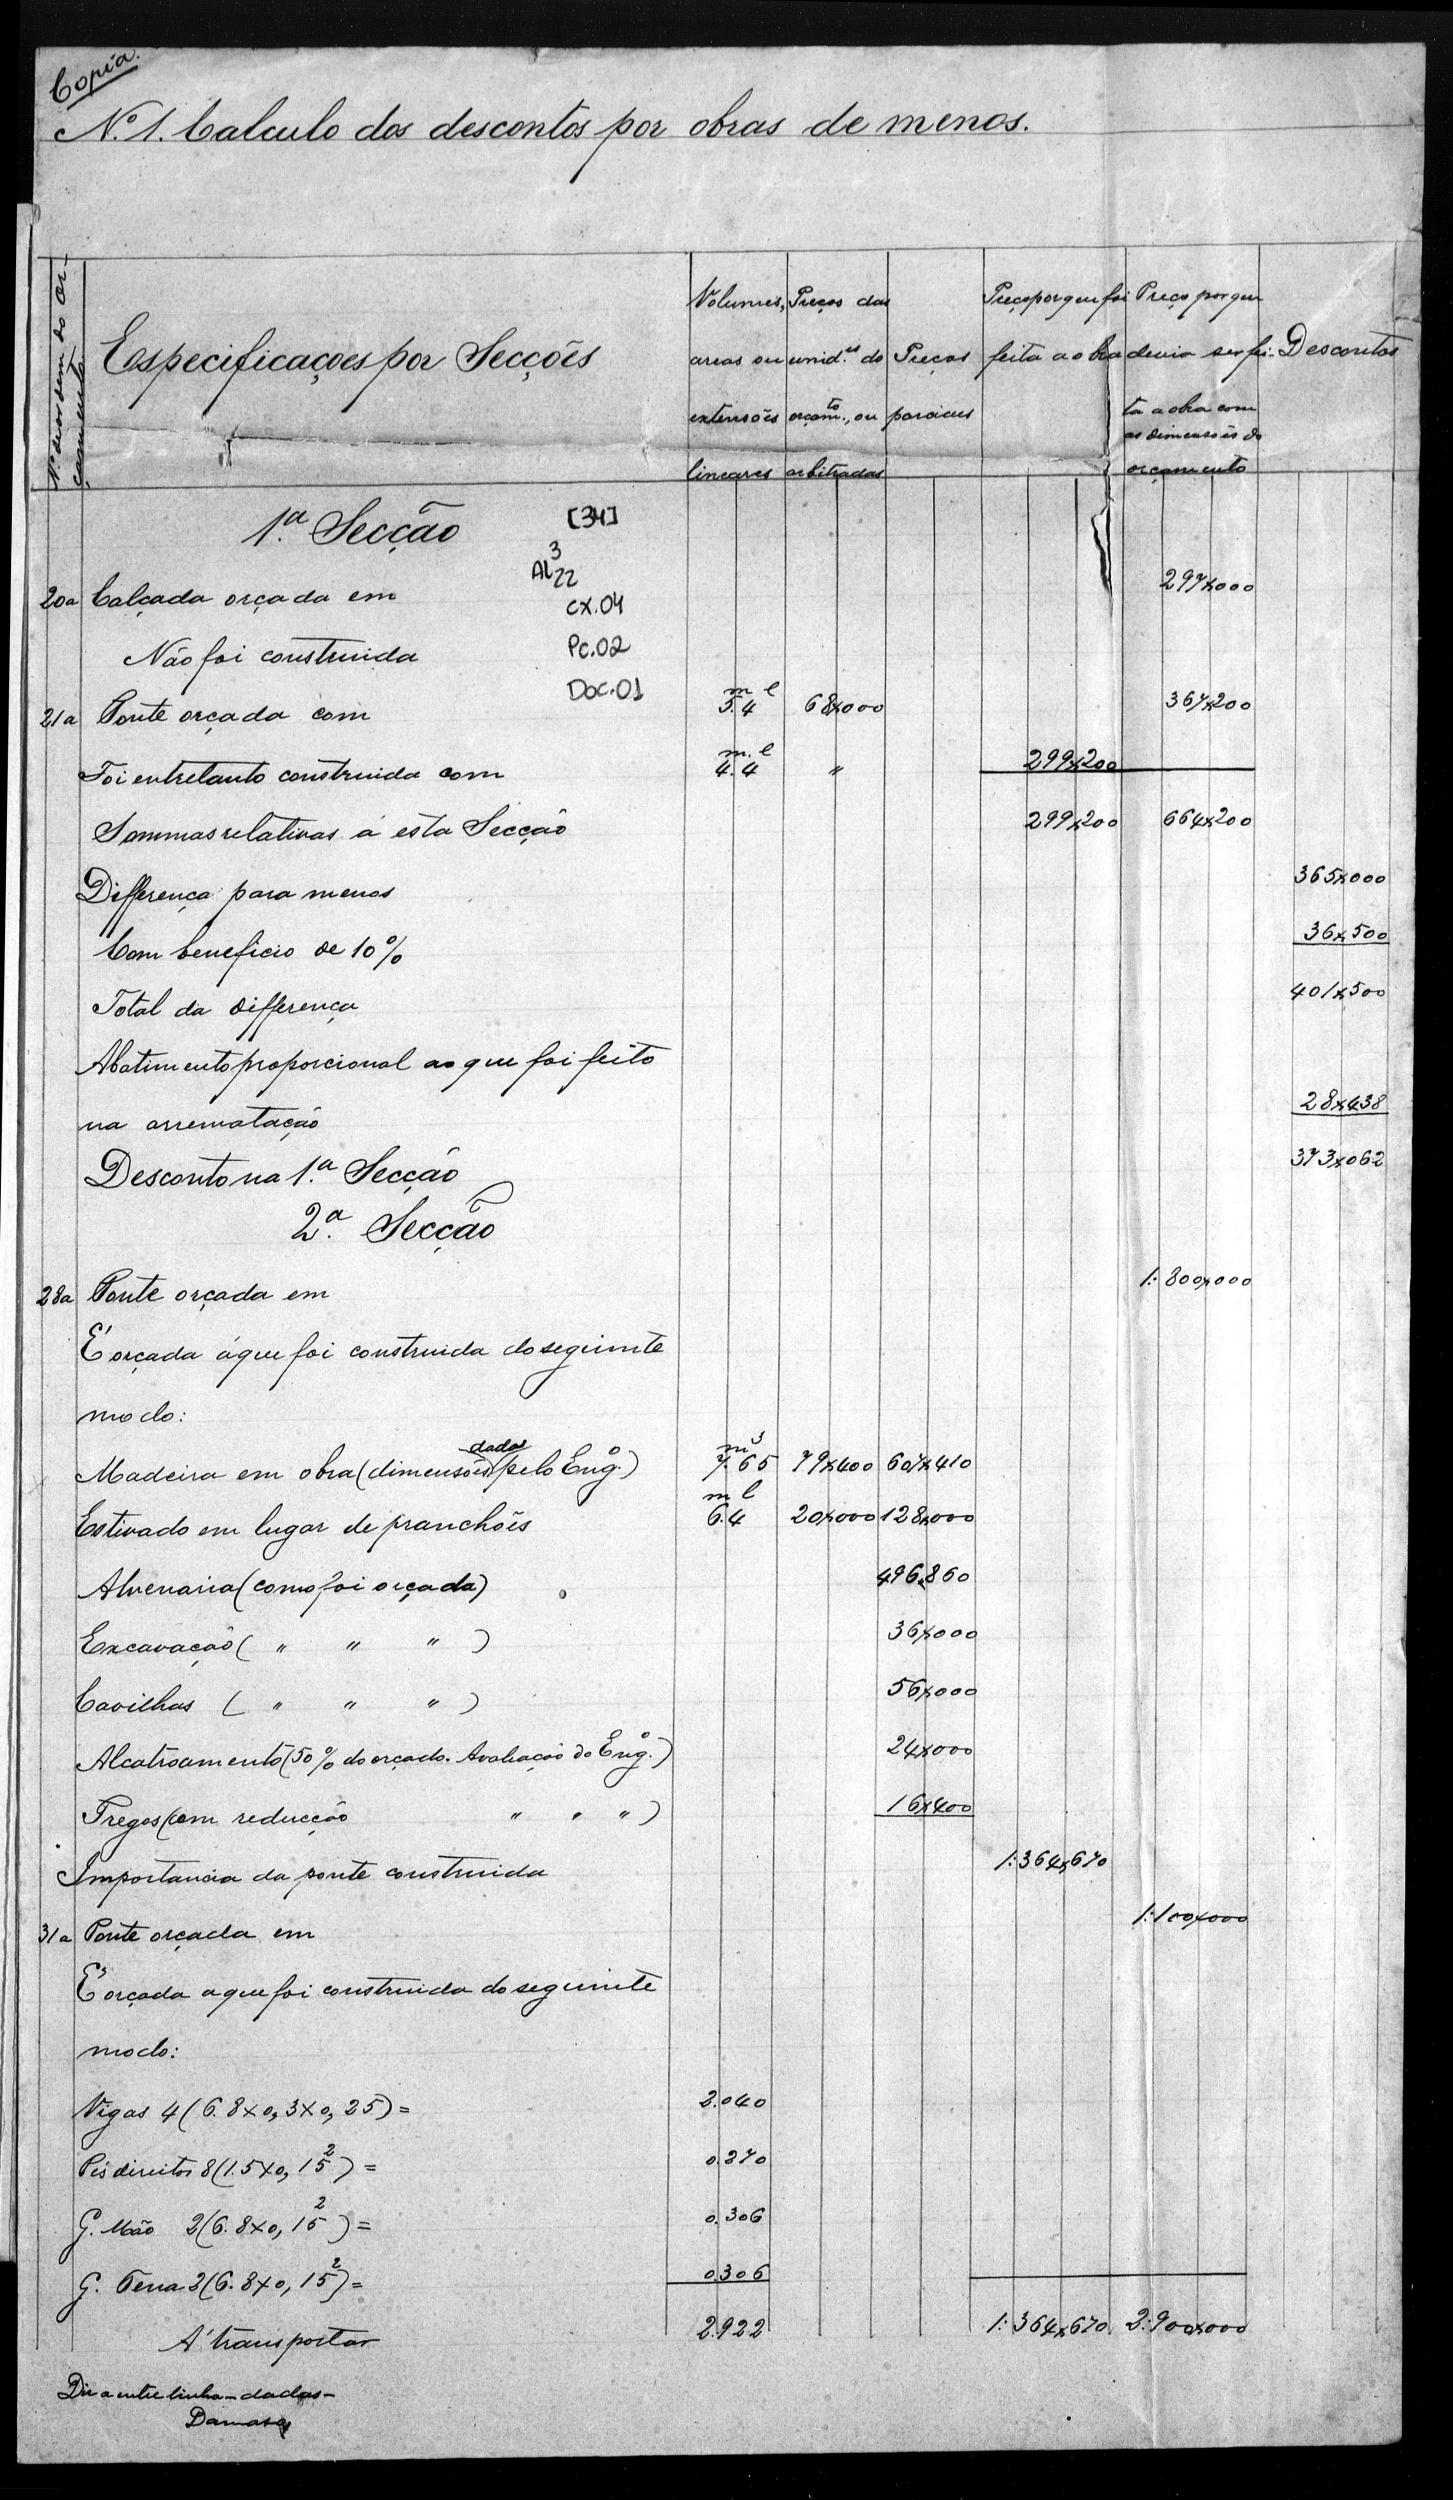 Copia.
Nº 1. Calculo dos descontos por obras de menos.
Nº de ordem do or-
çamento
Especificaçoes por Secções
Volumes,
areas ou
extensões
lineares
Preços das
unid.es do
orçam.to, ou
arbitradas
Preços
parciaes
Preço por que foi
feita a obra
Preço por que
devia ser fei-
ta a obra com
as dimensões do
orçamento
Descontos
1.ª Secção
[34]
Al 3 22
CX.04
Pc.02
Doc.01
20a Calçada orçada em 297$000
Não foi construida
21a Ponte orçada com m l 5.4 68$000 367$200
Foi entretanto construida com m.l 4.4 " 299$200
Sommas relativas á esta Secção 299$200 664$200
Differença para menos 365$000
Com beneficio de 10% 36$500
Total da differença 401$500
Abatimento proporcional ao que foi feito
na arrematação 28$438
Desconto na 1.ª Secção 373$062
2.ª Secção
28a Ponte orçada em 1:800$000
É orçada á que foi construida do seguinte
modo:
Madeira em obra (dimensões dadas pelo Engº.) m3 7.65 79$400 607$410
Estivado em lugar de pranchões m l 6.4 20$000 128$000
Alvenaria (como foi orçada) 496$860
Excavação ( " " " ) 36$000
Cavilhas ( " " " ) 56$000
Alcatroamento (50% do orçado. Avaliação do Engº.) 24$000
Pregos (em reducção " " " ) 16$400
Importancia da ponte construida 1:364$670
31a Ponte orçada em 1:100$000
É orçada a que foi construida do seguinte
modo:
Vigas 4 (6.8×0,3×0,25) = 2.040
Pés direitos 8 (1.5×0,15²) = 0.270
G. Mão 2 (6.8×0,15²) = 0.306
G. Terra 2 (6.8×0,15²) = 0.306
A transportar 2.922 1:364$670 2:900$000
Diz a entre linha - dadas -
Damaso